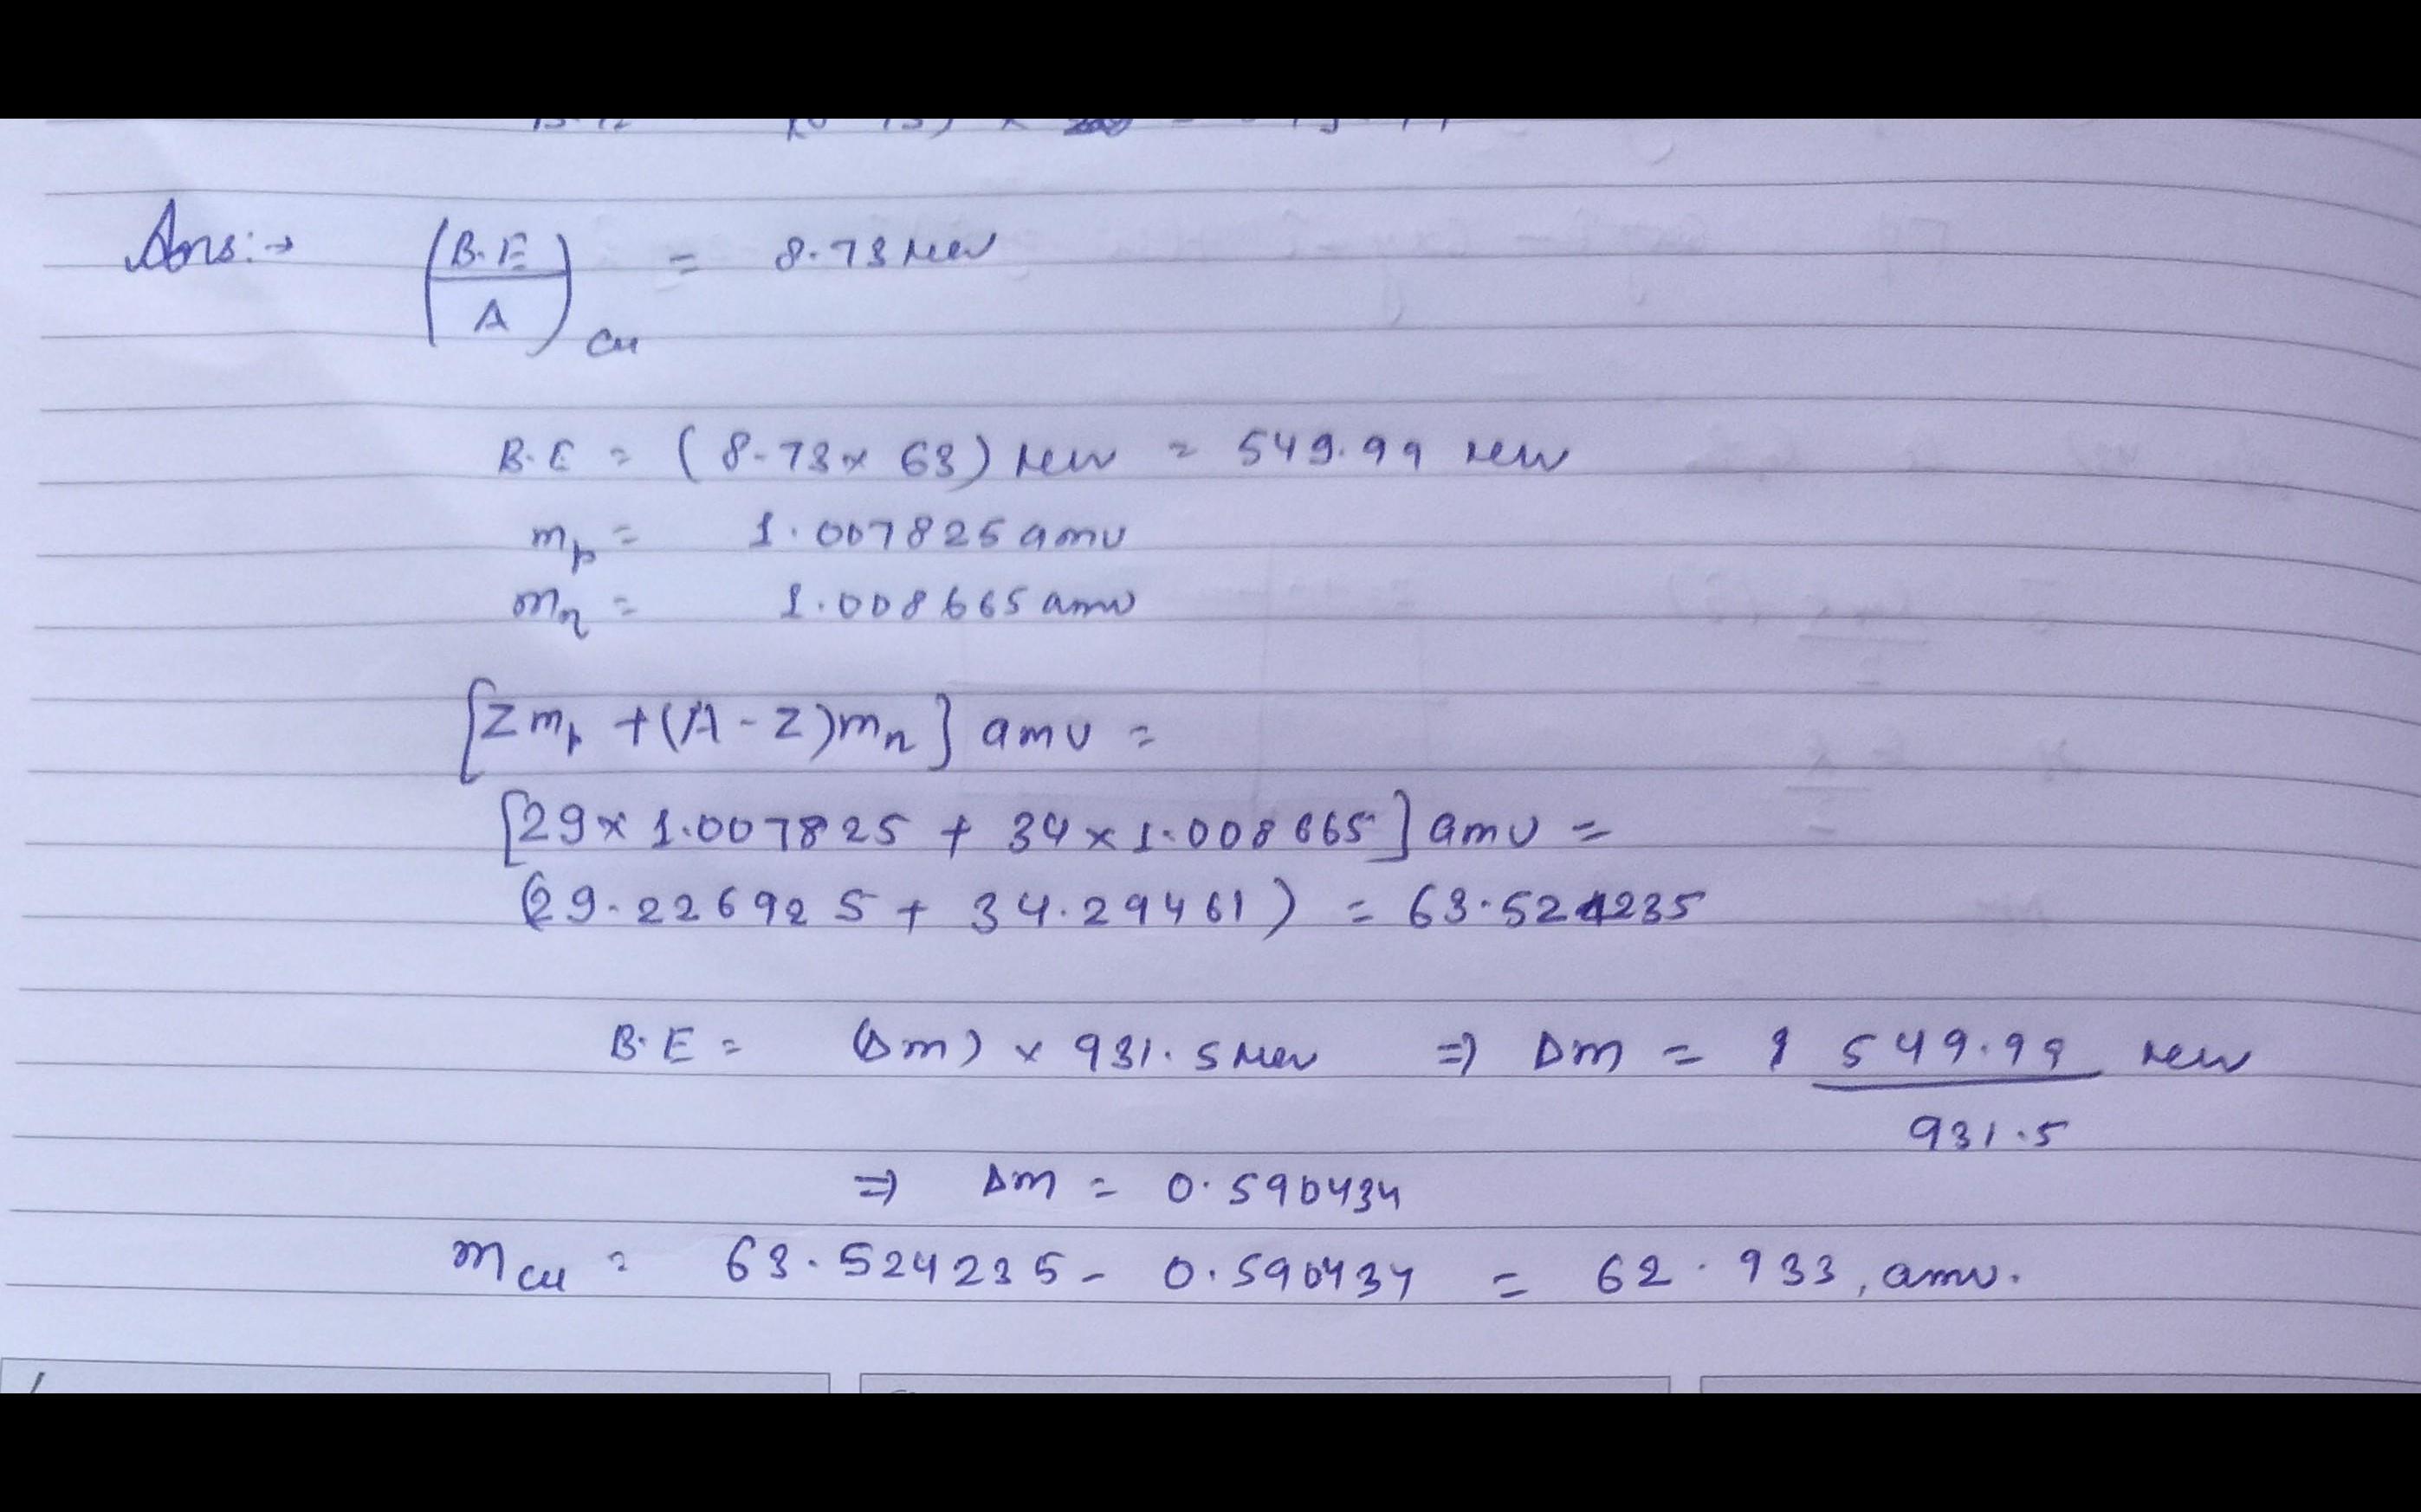 Ans:→ (B.E/A)Cu = 8.73 MeV
B.E = (8.73 x 63) MeV = 549.99 MeV
mp = 1.007825 amu
mn = 1.008665 amu
[Zmp + (A - Z)mn] amu =
[29 x 1.007825 + 34 x 1.008665] amu =
(29.226925 + 34.29461) = 63.524235
B.E = (Δm) x 931.5 MeV ⇒ Δm = 549.99/931.5 MeV
⇒ Δm = 0.590434
mCu = 63.524235 - 0.590434 = 62.933, amu.